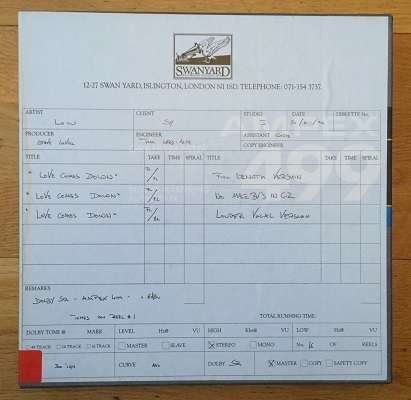 SWANYARD
12-27 SWAN YARD, ISLINGTON, LONDON N1 1SD. TELEPHONE: 071-354 3737.
ARTIST CLIENT STUDIO DATE DISKETTE No.
LOW
PRODUCER ENGINEER ASSISTANT
COPY ENGINEER
AMPEX
499
TITLE TAKE TIME SPIRAL TITLE TAKE TIME SPIRAL
"LOVE COMES DOWN" FULL LENGTH VERSION
"LOVE COMES DOWN" NO MALE BV'S IN C2
"LOVE COMES DOWN" LOUDER VOCAL VERSION
REMARKS
DOLBY SR - AMPEX
TONES ON REEL #1
TOTAL RUNNING TIME:
DOLBY TONE @ MARK LEVEL Hz@ VU HIGH Khz@ VU LOW Hz@ VU
48 TRACK 24 TRACK 16 TRACK MASTER SLAVE STEREO MONO No. OF REELS
30 ips CURVE AES DOLBY SR MASTER COPY SAFETY COPY